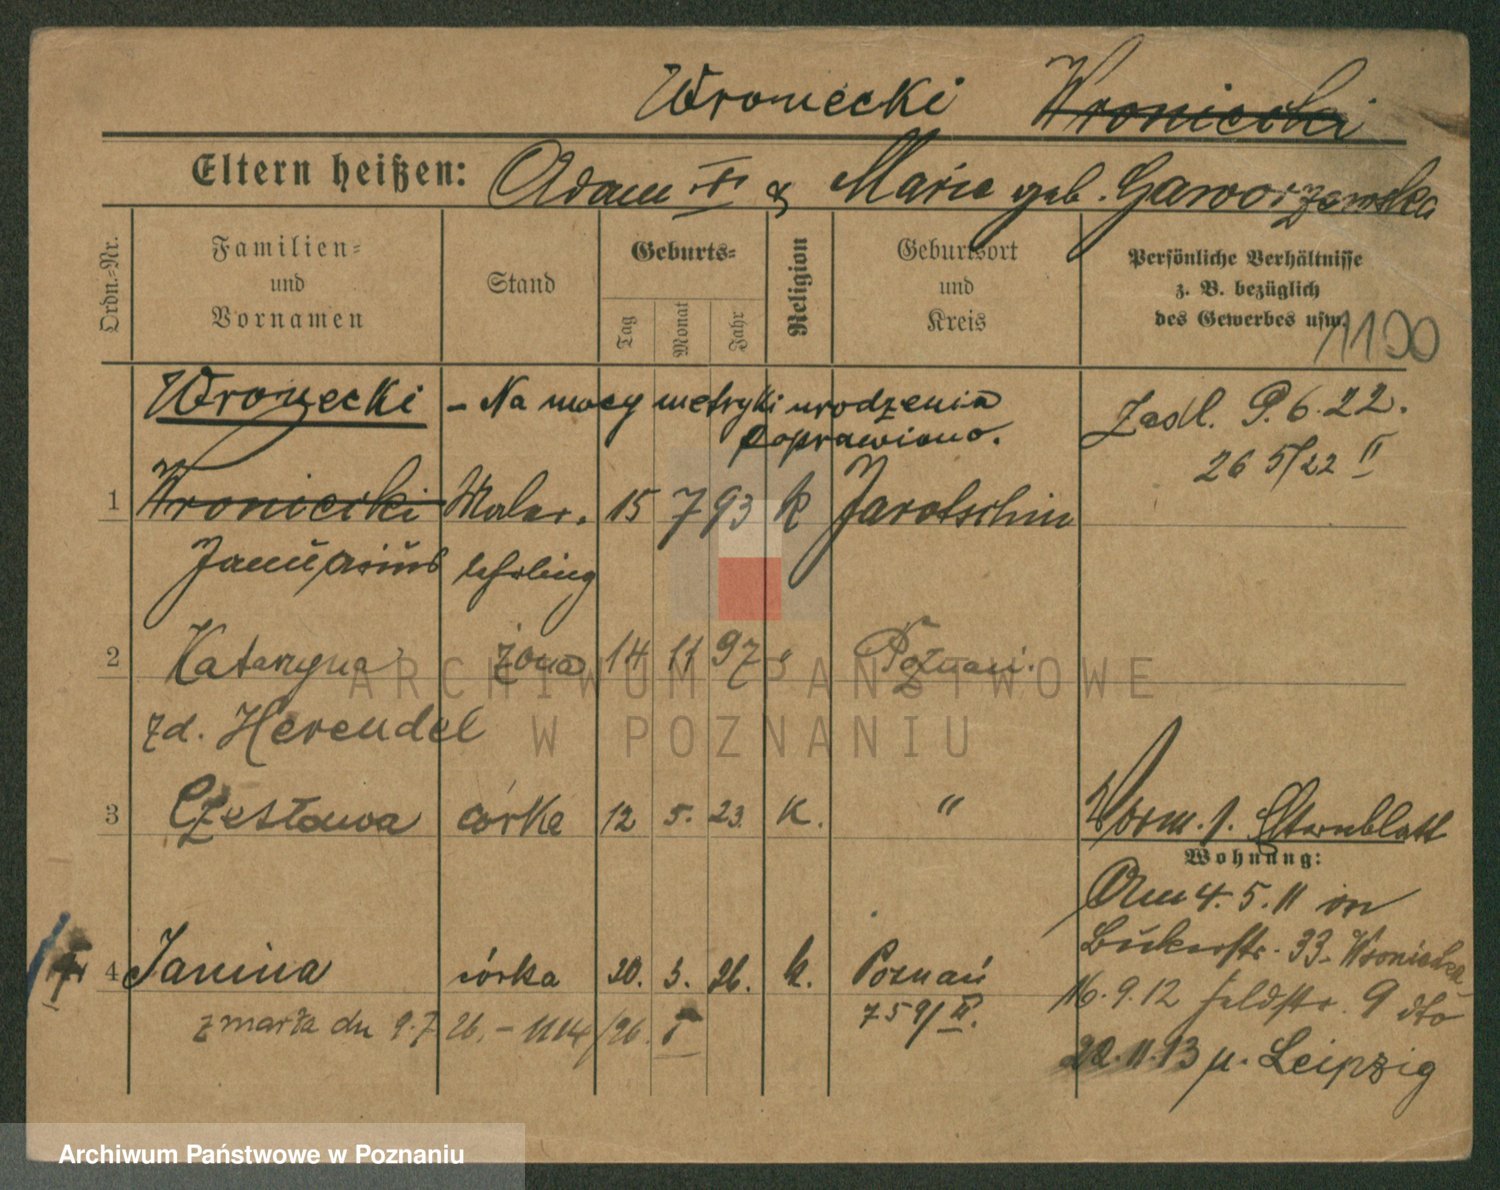 Wronecki Wroniecki
Eltern heißen: Adam † & Marie geb. Gaworzewska
Ordn.-Nr.
Familien-
und
Vornamen
Stand
Geburts-
Tag
Monat
Jahr
Religion
Geburtsort
und
Kreis
Persönliche Verhältnisse
z. B. bezüglich
des Gewerbes usw.
1190
Wronecki - Na mocy metryki urodzenia
poprawiono.
6.22.
26 5/22 II
1 Wroniecki Maler- 15 7 93 k Jarotschin
Januarius lehrling
2 Kataryna żona 14 11 97 " Poznań.
zd. Herendel
3 Czesława córke 12 5. 23. K. "
Vorm. s. Elternblatt
Wohnung:
Am 4. 5. 11 in
Bukerstr. 33. Wroniecka
4 Janina córka 20. 3. 26. k. Poznań
16. 9. 12 Feldstr. 9 dto
zmarła dn 9.7 26. - 1114/26. I
759/III.
22. 11. 13 n. Leipzig
ARCHIWUM PAŃSTWOWE
W POZNANIU
Archiwum Państwowe w Poznaniu